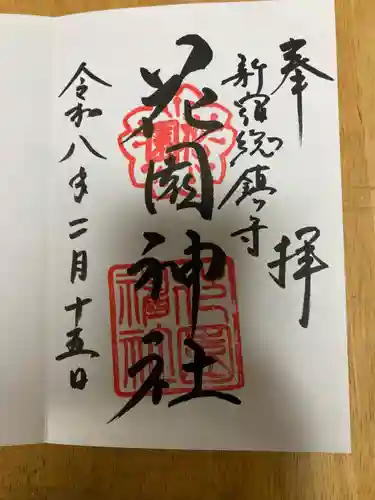 奉拝
新宿総鎮守
花園神社
令和八年二月十五日